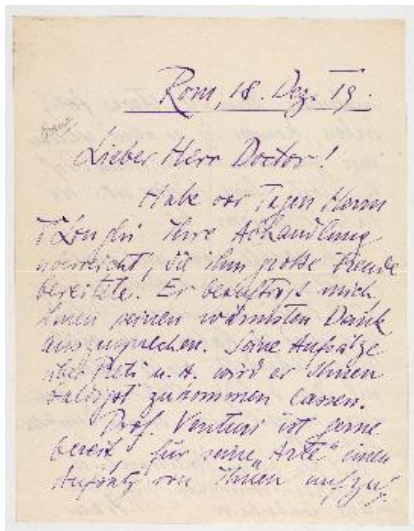 Rom, 18. Dez. 19.
Lieber Herr Doctor!
Habe vor Tagen Herrn
Longhi Ihre Abhandlung
überreicht, die ihm große Freude
bereitete. Er beauftragt mich
Ihnen seinen wärmsten Dank
auszusprechen. Seine Aufsätze
über Preti u. A. wird er Ihnen
baldigst zukommen lassen.
Prof. Venturi ist gerne
bereit für seine „Arte“ einen
Aufsatz von Ihnen aufzu=